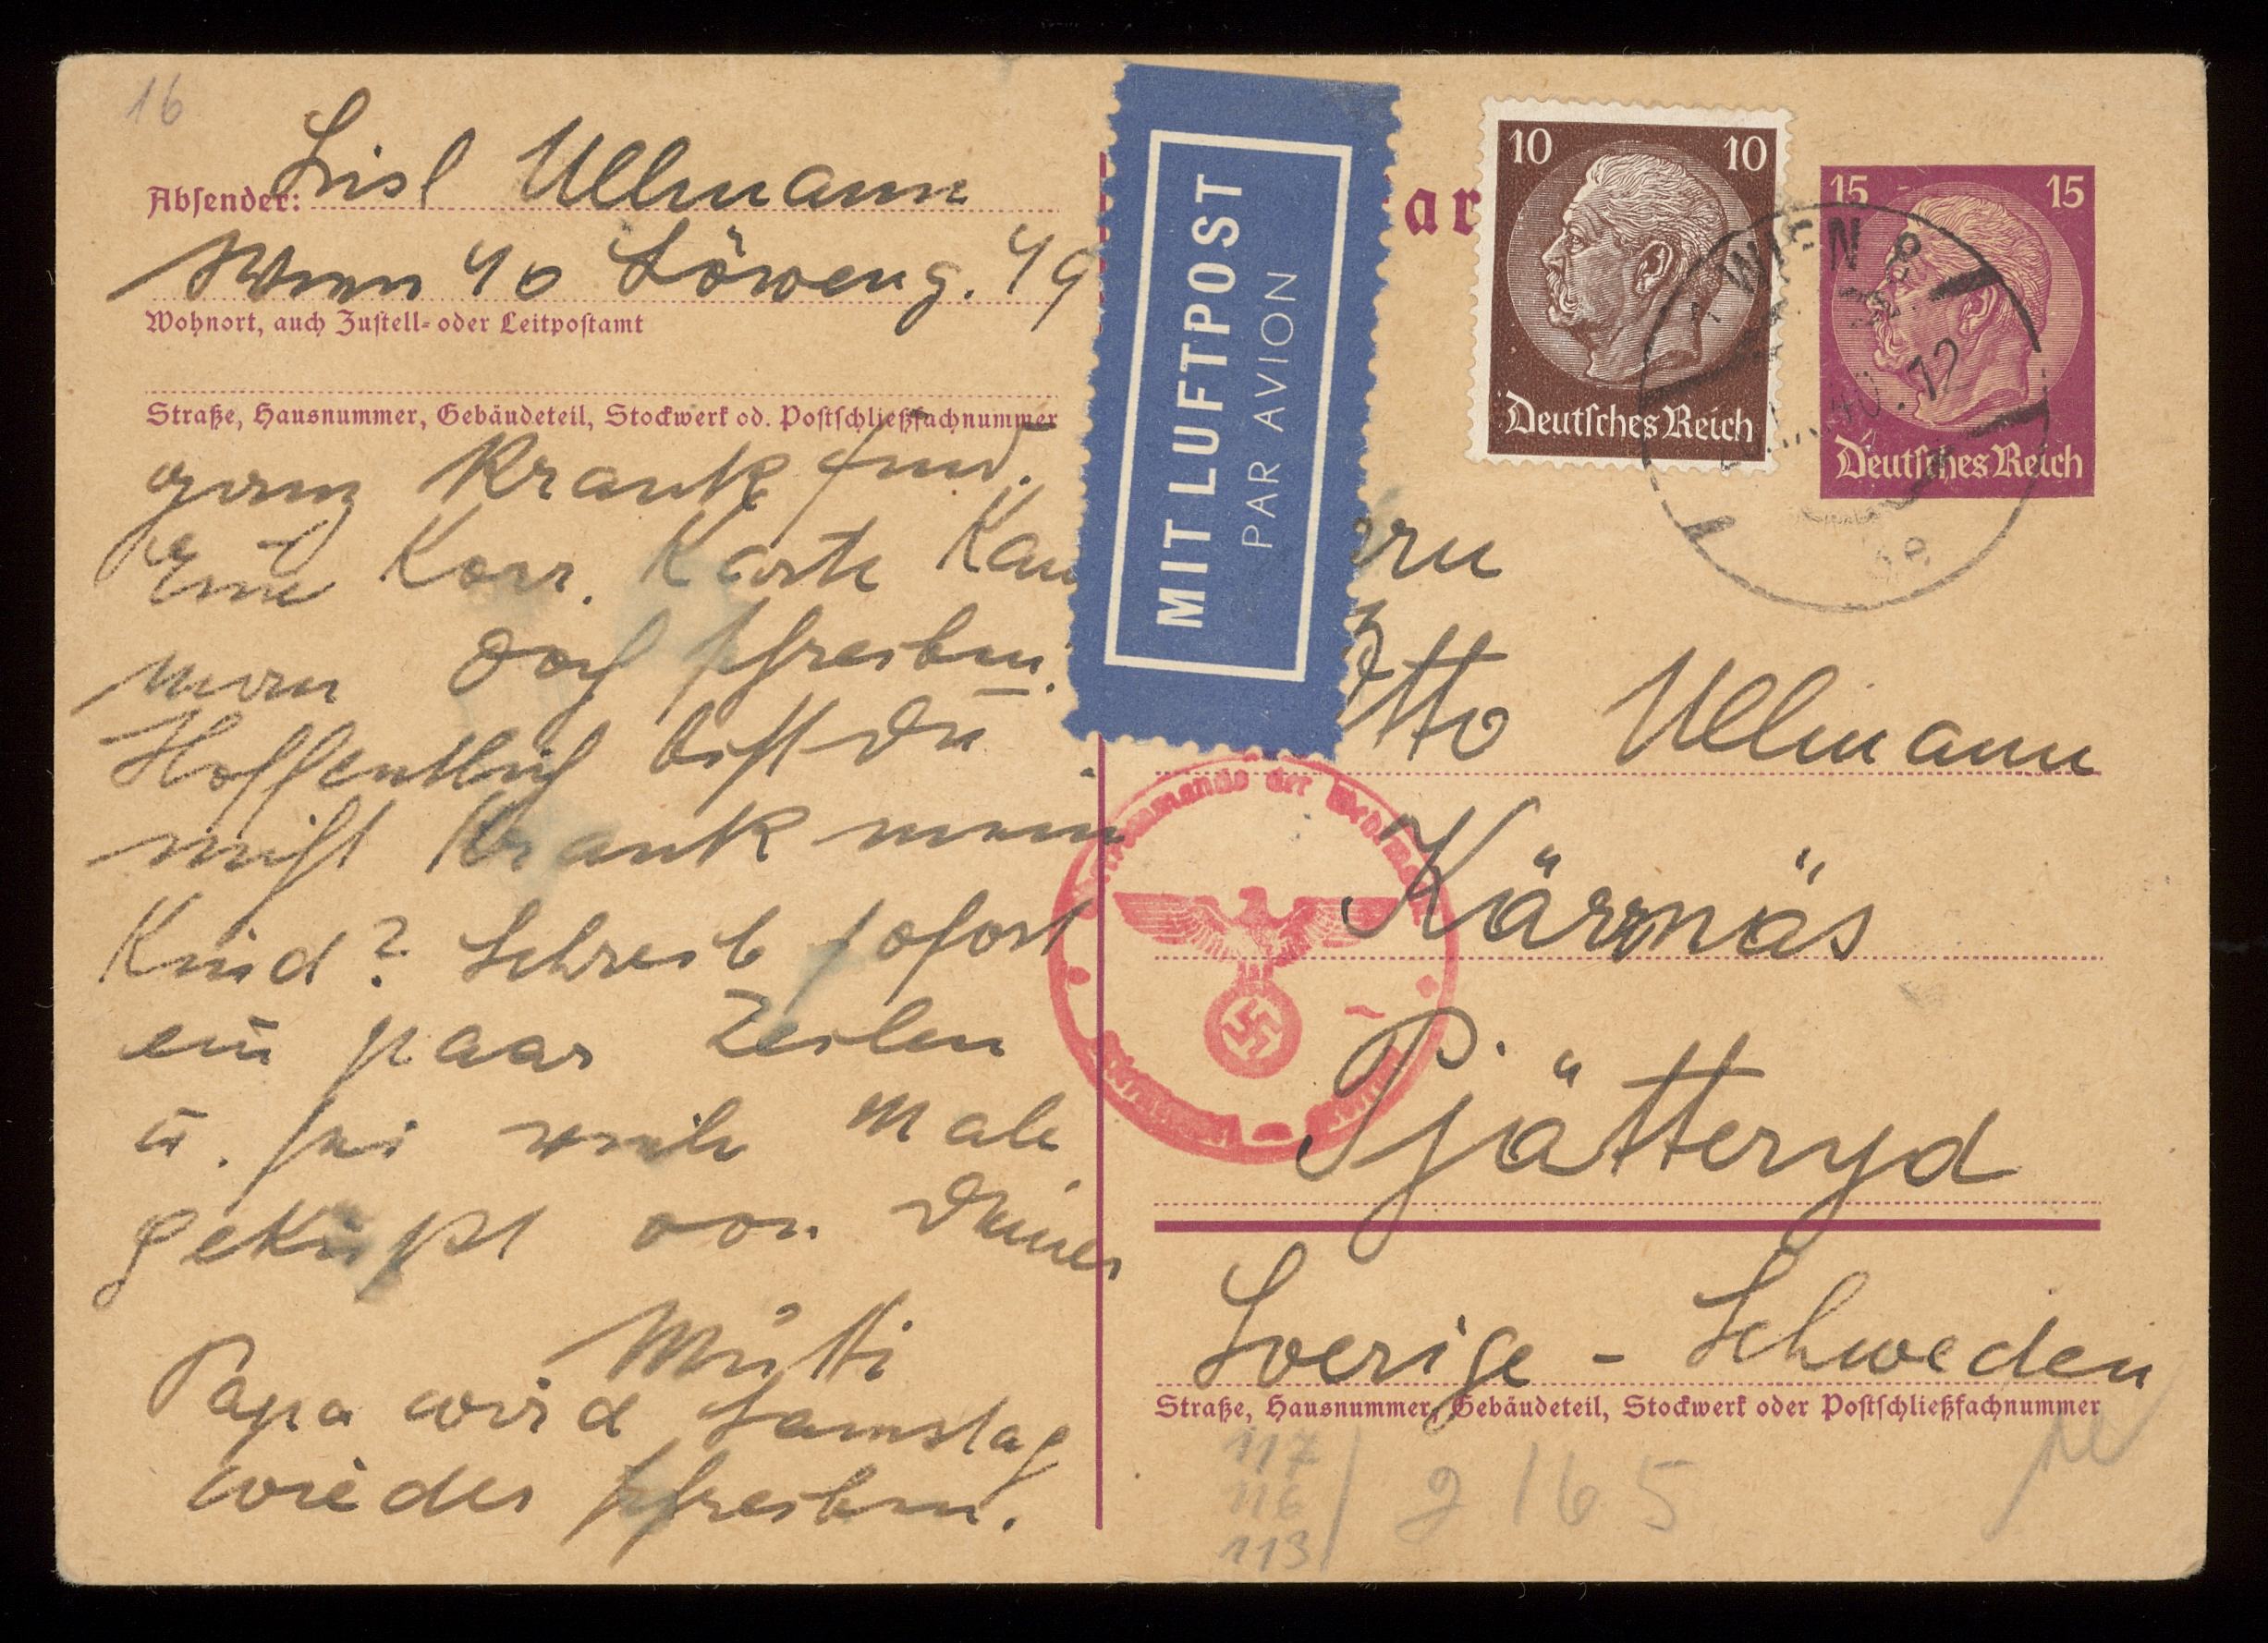 16
Absender: Lisl Ullmann
Wien 40 Löweng. 49
Wohnort, auch Zustell- oder Leitpostamt
Straße, Hausnummer, Gebäudeteil, Stockwerk od. Postschließfachnummer
ganz krank sind.
Eine Korr. Karte kan
man doch schreiben.
Hoffentlich bist Du
nicht krank mein
Kind? Schreib sofort
ein paar Zeilen
u. sei viele Male
geküßt von Deiner
Mutti
Papa wird Samstag
wieder schreiben.
MIT LUFTPOST
PAR AVION
ar
10 10
Deutsches Reich
15 15
Deutsches Reich
WIEN
40.12
rrn
Otto Ullmann
Oberkommando der Wehrmacht
Kärrnäs
Pjätteryd
Sverige - Schweden
Straße, Hausnummer, Gebäudeteil, Stockwerk oder Postschließfachnummer
117
116
113
2165